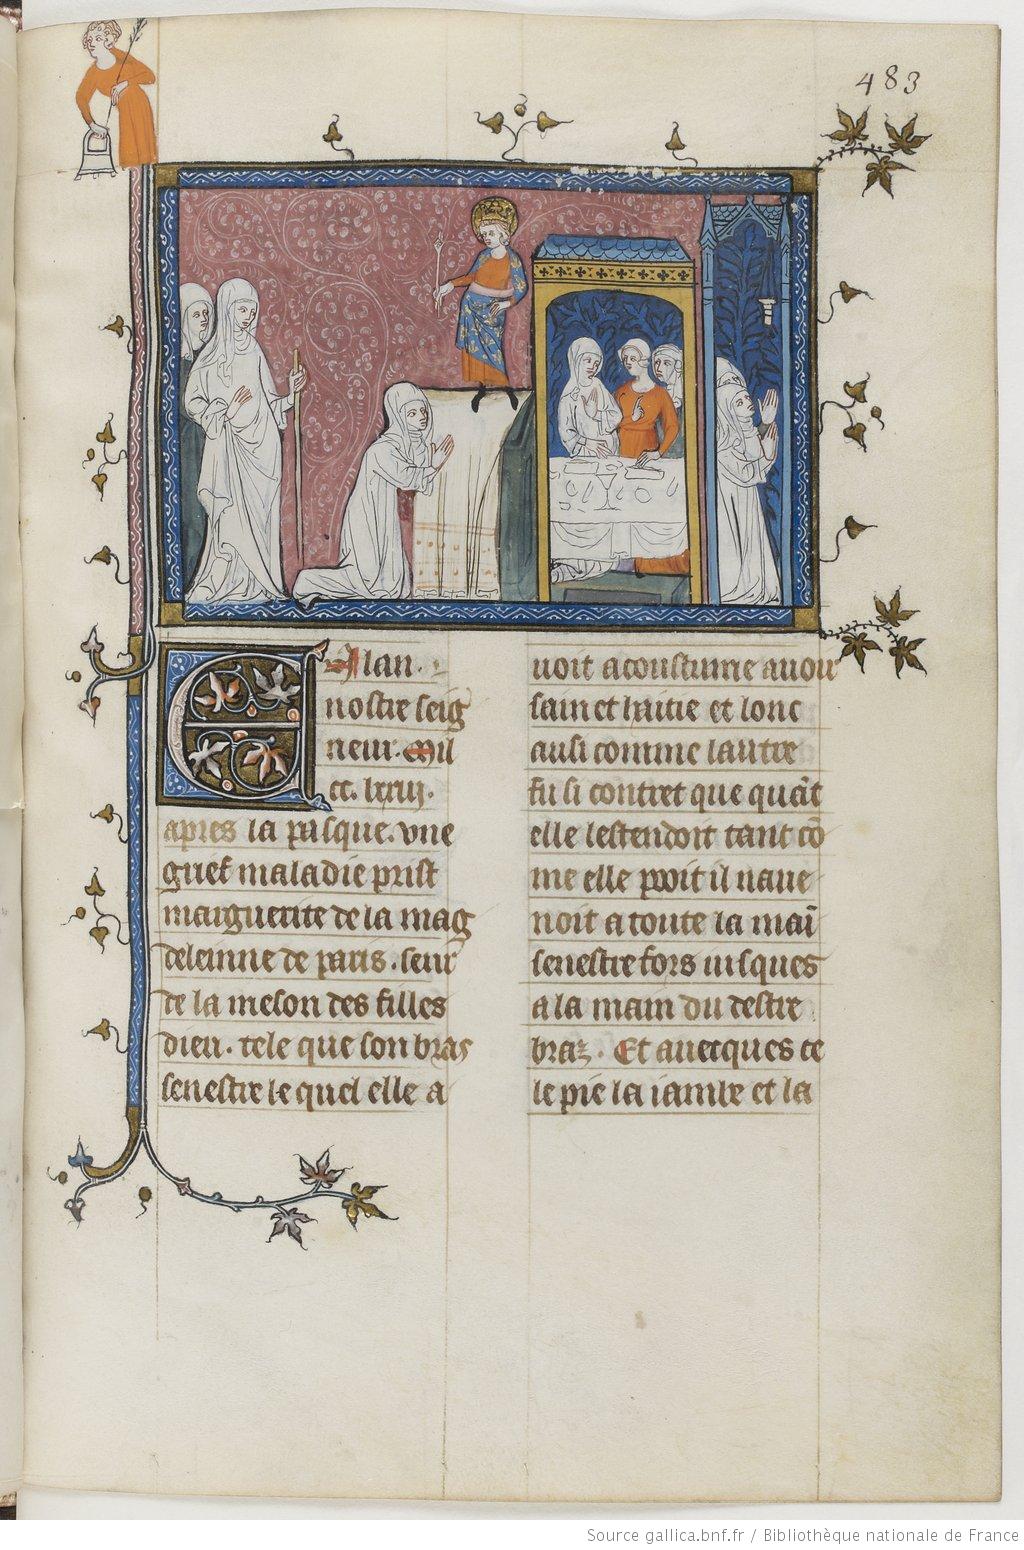 483
En lan
nostre seig
neur. Mil
cc. lxxiij.
apres la pasque. vne
grief maladie prist
marguerite de la mag
deleinne de paris. seur
de la meson des filles
dieu. tele que son bras
senestre le quel elle a
uoit acoustume auoir
sain et haitie et lonc
ausi comme lautre
fu si contret que quãt
elle lestendoit tant cõ
me elle pooit il naue
noit a toute la maĩ
senestre fors iusques
a la main du destre
braz. Et auecques ce
le pie la iambe et la
Source gallica.bnf.fr / Bibliothèque nationale de France